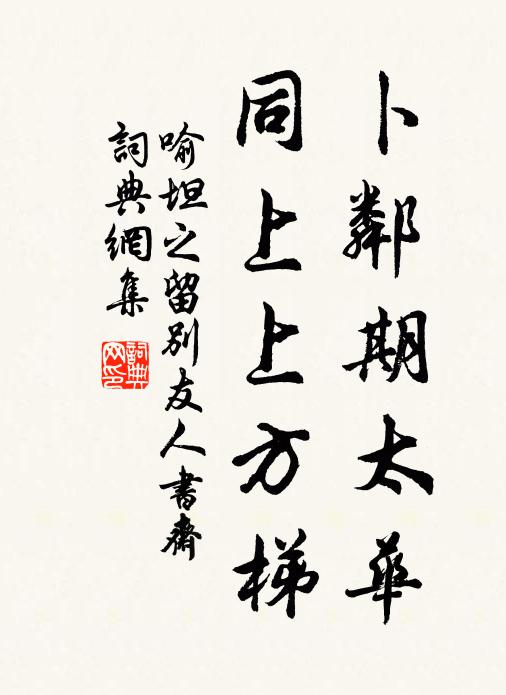 卜鄰期太華
同上上方梯
喻坦之留別友人書齋
詞典網集
詞典網印